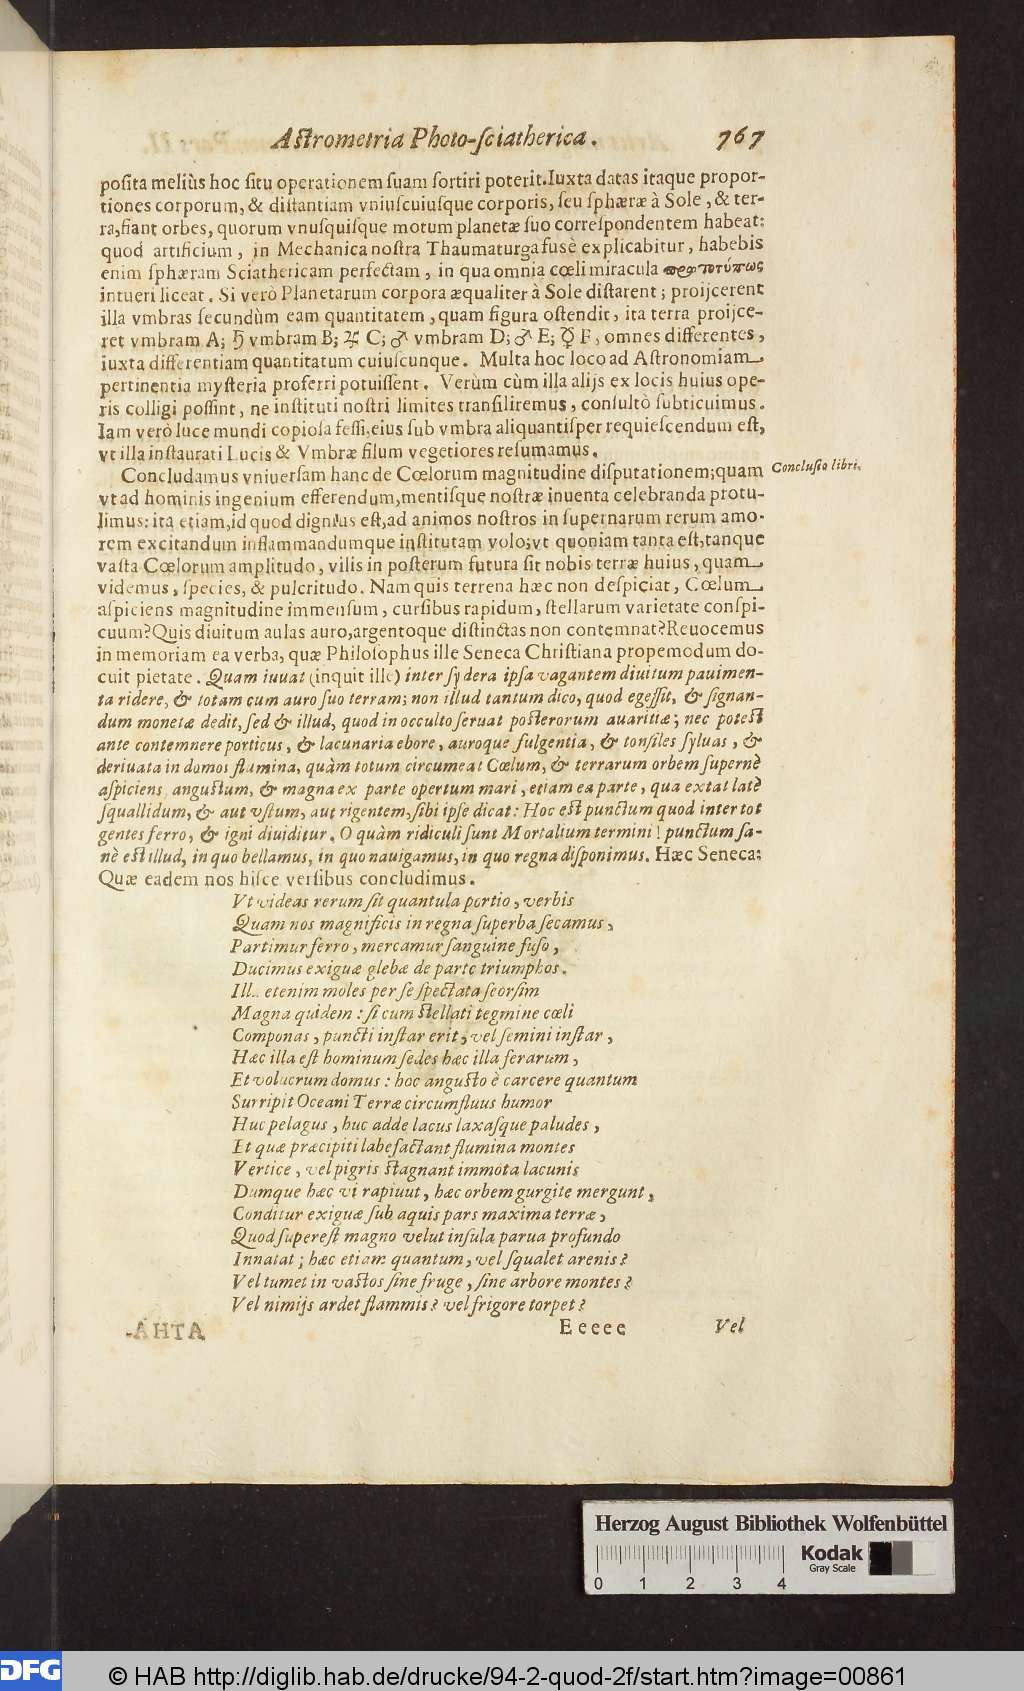 Astrometria Photo-sciatherica. 767
posita meliùs hoc situ operationem suam sortiri poterit. Iuxta datas itaque propor-
tiones corporum, & distantiam vniuscuiusque corporis, seu sphæræ à Sole, & ter-
ra, fiant orbes, quorum vnusquisque motum planetæ suo correspondentem habeat:
quod artificium, in Mechanica nostra Thaumaturga fusè explicabitur, habebis
enim sphæram Sciathericam perfectam, in qua omnia cœli miracula
intueri liceat. Si verò Planetarum corpora æqualiter à Sole distarent; proijcerent
illa vmbras secundùm eam quantitatem, quam figura ostendit, ita terra proijce-
ret vmbram A; ♄ vmbram B; ♃ C; ♂ vmbram D; ♂ E; ☿ F, omnes differentes,
iuxta differentiam quantitatum cuiuscunque. Multa hoc loco ad Astronomiam
pertinentia mysteria proferri potuissent. Verùm cùm illa alijs ex locis huius ope-
ris colligi possint, ne instituti nostri limites transiliremus, consultò subticuimus.
Iam verò luce mundi copiosa fessi, eius sub vmbra aliquantisper requiescendum est,
vt illa instaurati Lucis & Vmbræ filum vegetiores resumamus.
Concludamus vniuersam hanc de Cœlorum magnitudine disputationem; quam
Conclusio libri.
vt ad hominis ingenium efferendum, mentisque nostræ inuenta celebranda protu-
limus: ita etiam, id quod dignius est, ad animos nostros in supernarum rerum amo-
rem excitandum inflammandumque institutam volo; vt quoniam tanta est, tanque
vasta Cœlorum amplitudo, vilis in posterum futura sit nobis terræ huius, quam
videmus, species, & pulcritudo. Nam quis terrena hæc non despiciat, Cœlum
aspiciens magnitudine immensum, cursibus rapidum, stellarum varietate conspi-
cuum? Quis diuitum aulas auro, argentoque distinctas non contemnat? Reuocemus
in memoriam ea verba, quæ Philosophus ille Seneca Christiana propemodum do-
cuit pietate. Quam iuuat (inquit ille) inter sydera ipsa vagantem diuitum pauimen-
ta ridere, & totam cum auro suo terram; non illud tantum dico, quod egessit, & signan-
dum monetæ dedit, sed & illud, quod in occulto seruat posterorum auaritiæ; nec potest
ante contemnere porticus, & lacunaria ebore, auroque fulgentia, & tonsiles syluas, &
deriuata in domos flumina, quàm totum circumeat Cœlum, & terrarum orbem supernè
aspiciens angustum, & magna ex parte opertum mari, etiam ea parte, qua extat latè
squallidum, & aut vstum, aut rigentem, sibi ipse dicat: Hoc est punctum quod inter tot
gentes ferro, & igni diuiditur. O quàm ridiculi sunt Mortalium termini! punctum sa-
nè est illud, in quo bellamus, in quo nauigamus, in quo regna disponimus. Hæc Seneca:
Quæ eadem nos hisce versibus concludimus.
Vt videas rerum sit quantula portio, verbis
Quam nos magnificis in regna superba secamus,
Partimur ferro, mercamur sanguine fuso,
Ducimus exiguæ glebæ de parte triumphos.
etenim moles per se spectata seorsim
Magna quidem: si cum stellati tegmine cœli
Componas, puncti instar erit, vel semini instar,
Hæc illa est hominum sedes hæc illa ferarum,
Et volucrum domus: hoc angusto è carcere quantum
Surripit Oceani Terræ circumfluus humor
Huc pelagus, huc adde lacus laxasque paludes,
Et quæ præcipiti labefactant flumina montes
Vertice, vel pigris stagnant immota lacunis
Dumque hæc vi rapiuut, hæc orbem gurgite mergunt,
Conditur exiguæ sub aquis pars maxima terræ,
Quod superest magno velut insula parua profundo
Innatat; hæc etiam quantum, vel squalet arenis?
Vel tumet in vastos sine fruge, sine arbore montes?
Vel nimijs ardet flammis? vel frigore torpet?
Eeeee Vel
Herzog August Bibliothek Wolfenbüttel
Kodak
Gray Scale
0 1 2 3 4
DFG © HAB http://diglib.hab.de/drucke/94-2-quod-2f/start.htm?image=00861